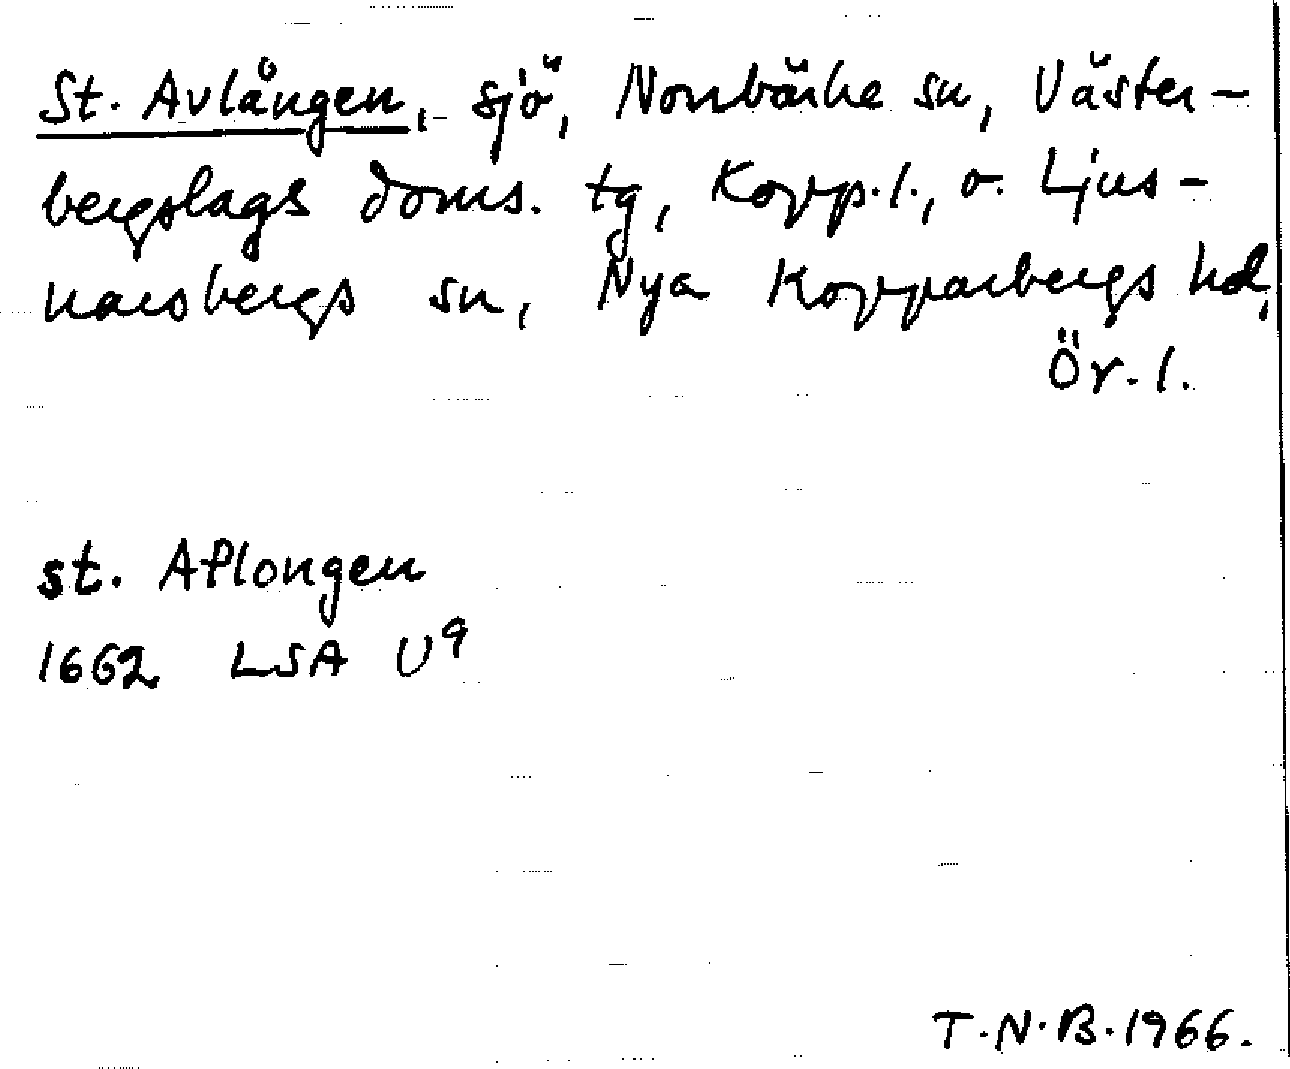 St. Avlången, sjö, Norrbärke sn, Väster-
bergslags doms. tg, Kopp.l., o. Ljus-
narsbergs sn, Nya Kopparbergs hd,
Ör.l.
st. Aflongen
1662 LSA U9
T.N.B.1966.